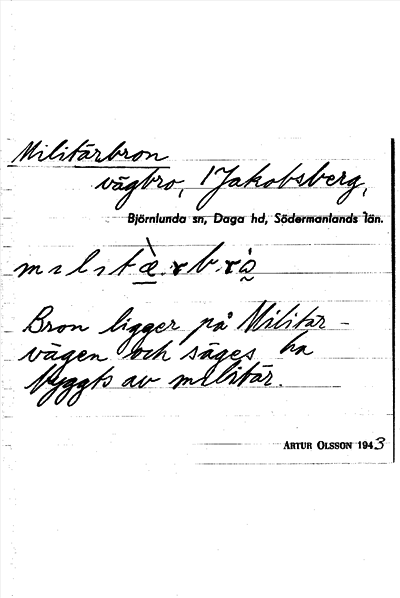 Militärbron
vägbro, 1 Jakobsberg,
Björnlunda sn, Daga hd, Södermanlands län.
Bron ligger på Militär-
vägen och säges ha
byggts av militär.
ARTUR OLSSON 1943